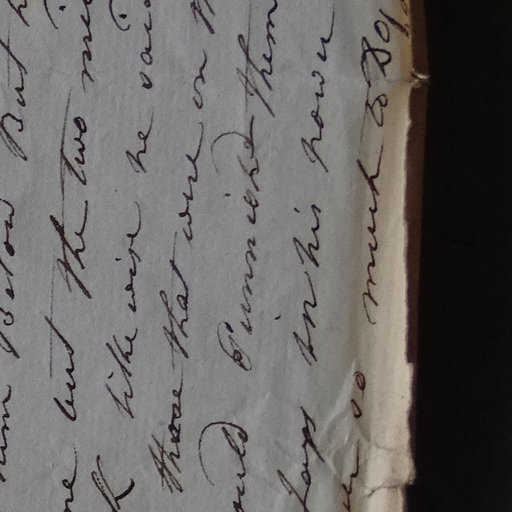 him Below But h
me but the two mi
k like wise he said
those that were on
ould Punnish them
Lays in his power
so much to